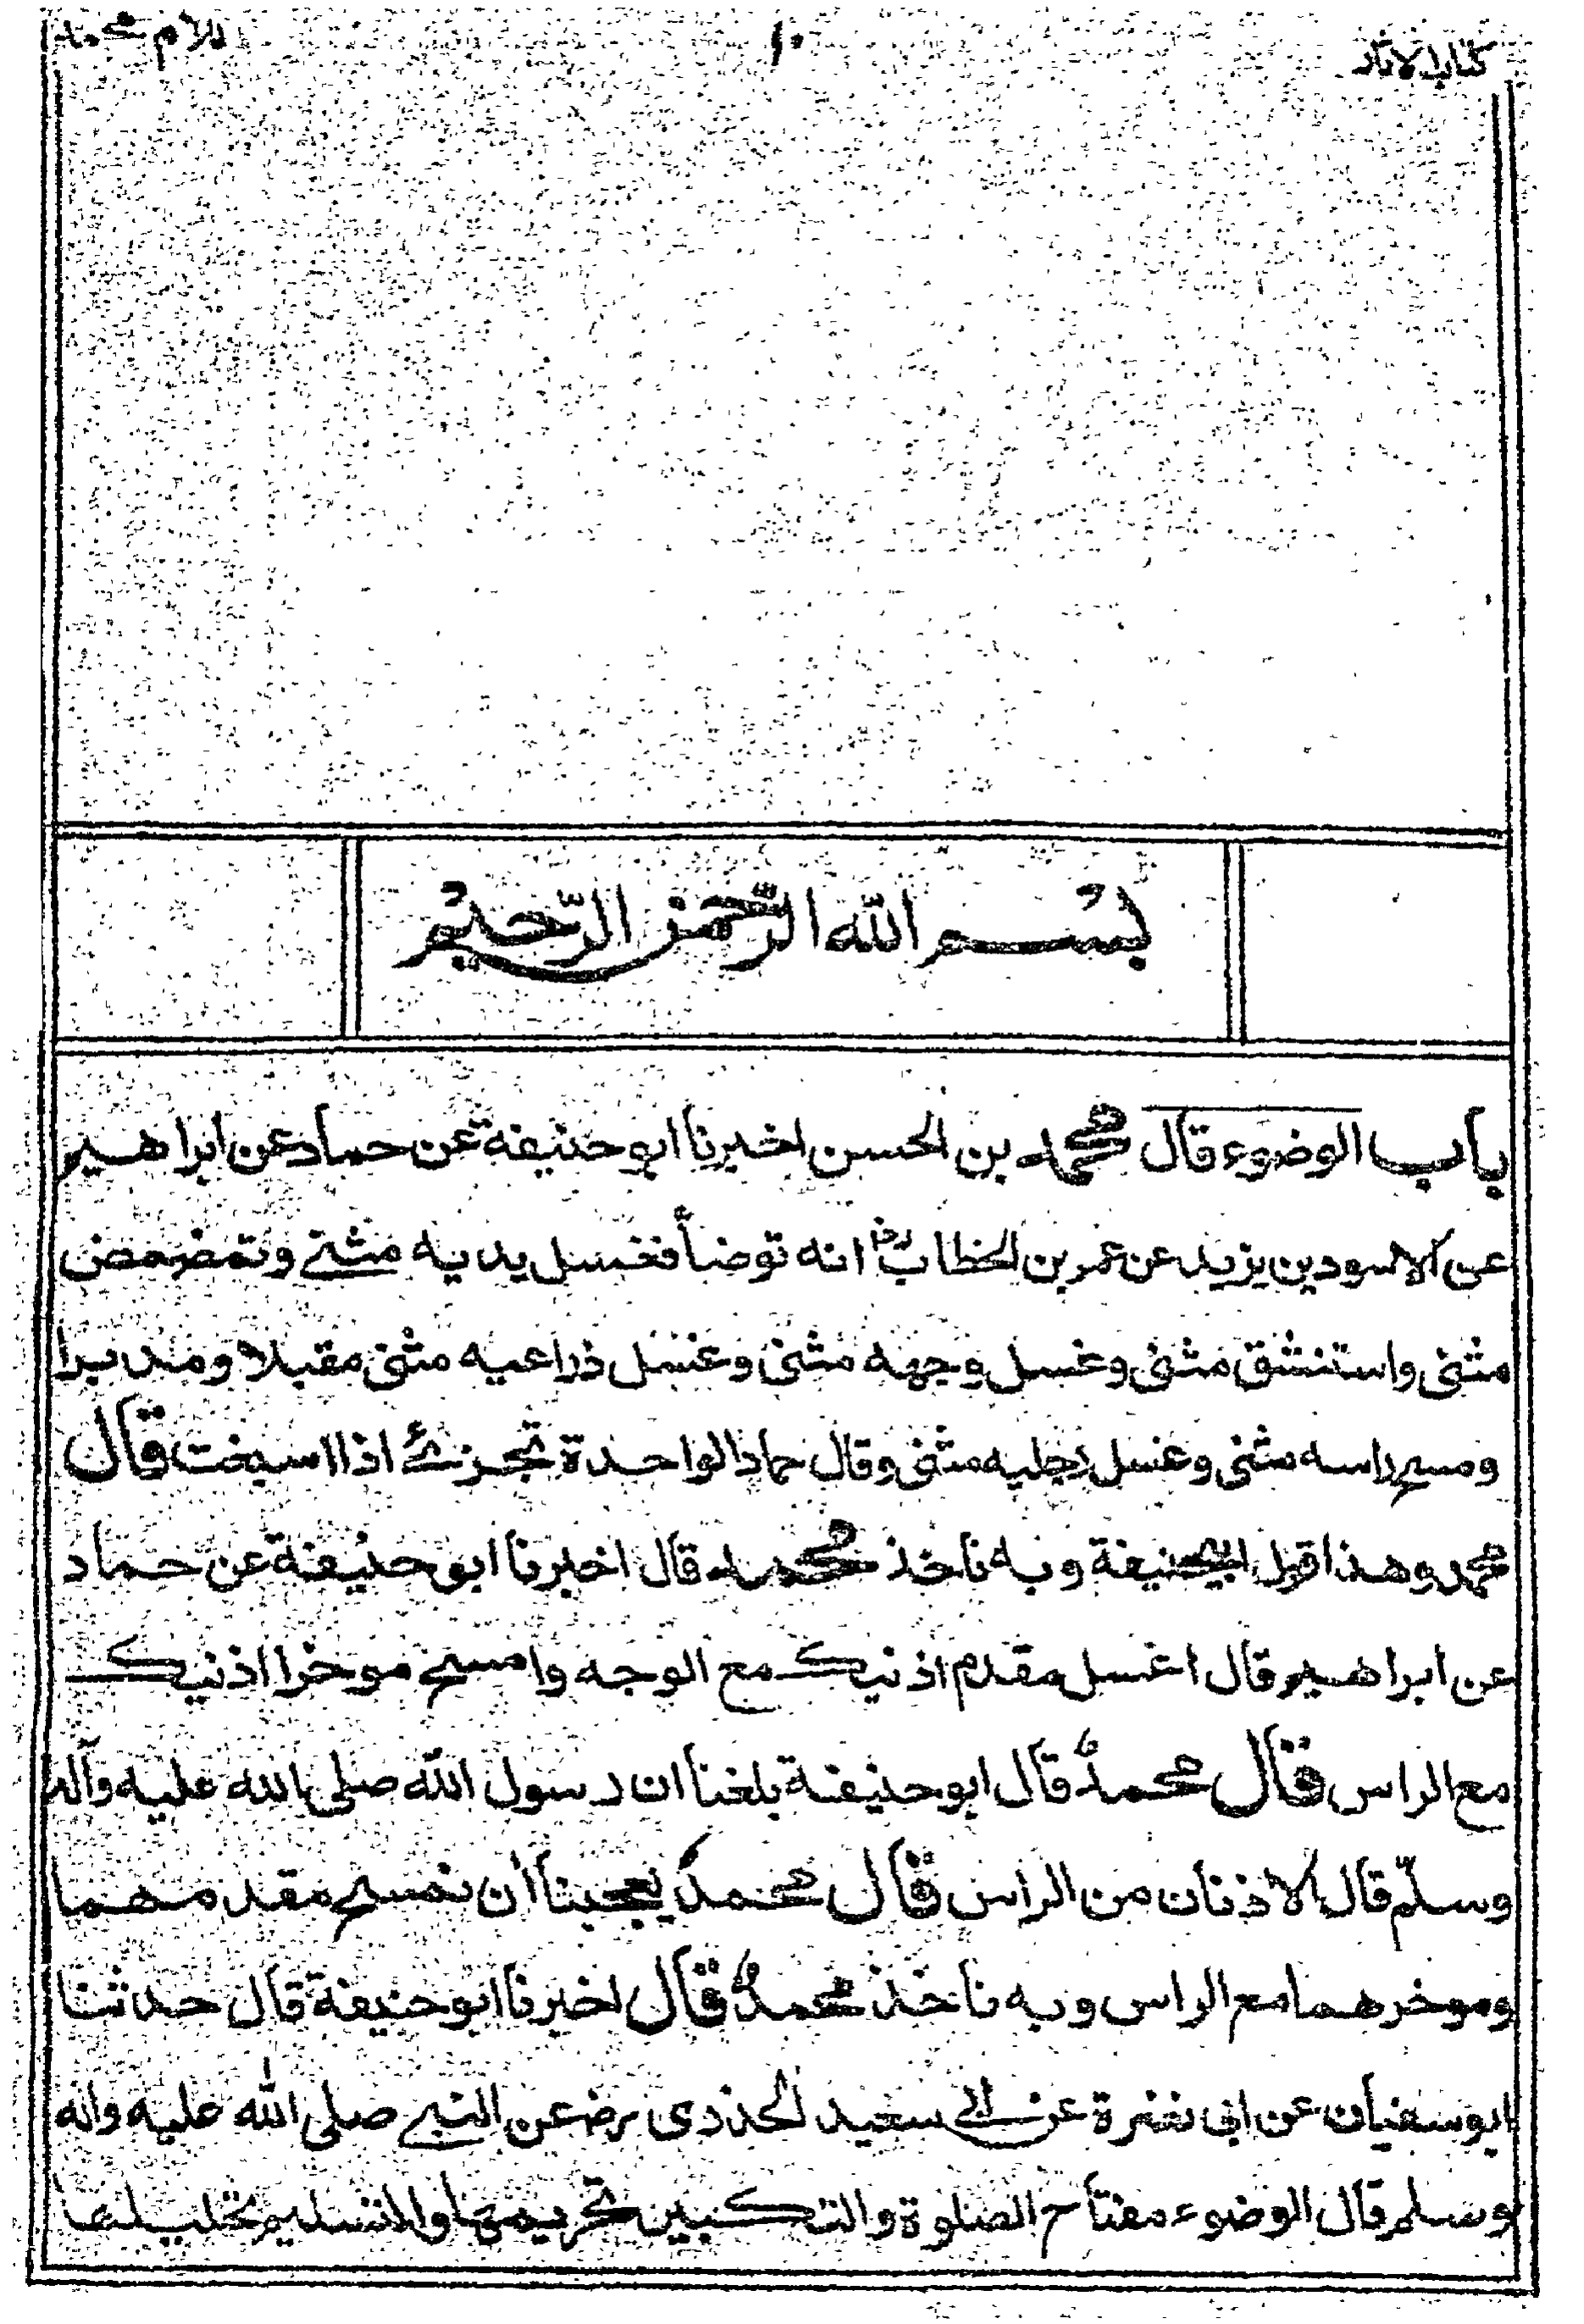 كتاب الآثار ١٠ للامام محمد
بسم الله الرّحمن الرّحيم
باب الوضوء قال محمد بن الحسن اخبرنا ابو حنيفة عن حماد عن ابراهيم
عن الاسود بن يزيد عن عمر بن الخطاب رض انه توضأ فغسل يديه مثنى وتمضمض
مثنى واستنشق مثنى وغسل وجهه مثنى وغسل ذراعيه مثنى مقبلا ومدبرا
ومسح راسه مثنى وغسل رجليه مثنى وقال حماد الواحدة تجزئ اذا اسبغت قال
محمد وهذا قول ابيحنيفة وبه ناخذ محمد قال اخبرنا ابو حنيفة عن حماد
عن ابراهيم قال اغسل مقدم اذنيك مع الوجه وامسح موخر اذنيك
مع الراس قال محمدٌ قال ابو حنيفة بلغنا ان رسول الله صلى الله عليه وآله
وسلّم قال الاذنان من الراس قال محمدٌ يعجبنا أن نمسح مقدمهما
وموخرهما مع الراس وبه ناخذ محمدٌ قال اخبرنا ابو حنيفة قال حدثنا
ابو سفيان عن ابى نضرة عن ابى سعيد الخدرى رض عن النبي صلى الله عليه وآله
وسلم قال الوضوء مفتاح الصلوة والتكبير تحريمها والتسليم تحليلها